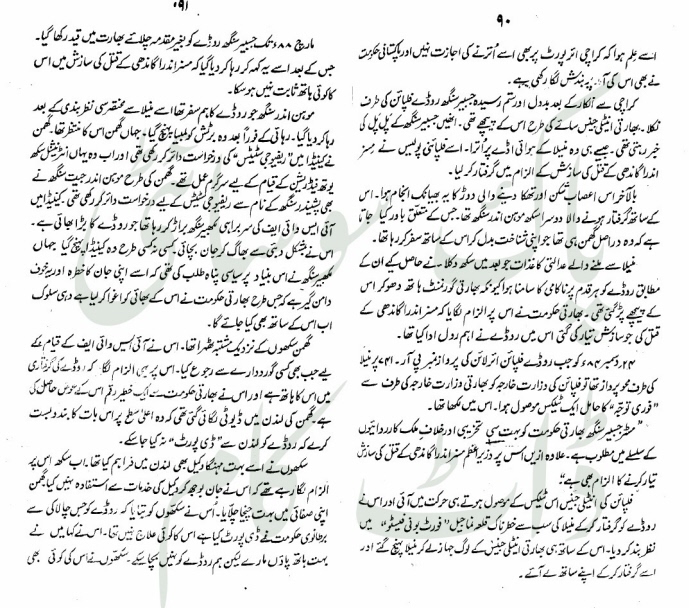 ۹۰
اسے علم ہوا کہ کراچی ائر پورٹ پر بھی اسے اُترنے کی اجازت نہیں اور پاکستانی حکومت
نے بھی اس کی آمد پہ بندش لگا رکھی ہے۔
کراچی سے ناکار کے بعد بددل اور ستم رسیدہ جسبیر سنگھ روڈے فلپائن کی طرف
نکلا۔ بھارتی انٹیلی جنس سائے کی طرح اس کے پیچھے تھی۔ انھیں جسبیر سنگھ کے پل پل کی
خبر رہتی تھی۔ جیسے ہی وہ منیلا کے ہوائی اڈے پر اُترا۔ اسے فلپائنی پولیس نے مسز
اندرا گاندھی کے قتل کی سازش کے الزام میں گرفتار کر لیا۔
بالآخر اس اعصاب شکن اور تھکا دینے والی دوڑ کا یہ بھیانک انجام ہوا۔ اس
کے ساتھ گرفتار ہونے والا دوسرا سکھ موہن اندر سنگھ تھا۔ جس کے متعلق باور کیا جاتا
ہے کہ وہ دراصل گھمن ہی تھا جو اپنی شناخت بدل کر اس کے ساتھ سفر کر رہا تھا۔
منیلا سے ملنے والے عدالتی کاغذات جو بعد میں سکھ وکلا نے حاصل کیے ان کے
مطابق روڈے کو ہر قدم پر ناکامی کا سامنا ہوا کیونکہ بھارتی گورنمنٹ ہاتھ دھو کر اس
کے پیچھے پڑ گئی تھی۔ بھارتی حکومت نے اس پر الزام لگایا کہ مسز اندرا گاندھی کے
قتل کی جو سازش تیار کی گئی اس میں روڈے نے اہم رول ادا کیا تھا۔
۲۴ دسمبر ۸۴ء کو جب روڈے فلپائن ائر لائن کی پرواز نمبر پی آر۔ ۷۴۱ پر منیلا
کی طرف محو پرواز تھا تو فلپائن کی وزارت خارجہ کو بھارتی وزارت خارجہ کی طرف سے
"فوری توجہ" کا حامل ایک ٹیلکس موصول ہوا۔ اس میں لکھا تھا۔
"مسٹر جسبیر سنگھ بھارتی حکومت کو بہت سی تخریبی اور خلافِ ملک کارروائیوں
کے سلسلے میں مطلوب ہے۔ علاوہ ازیں اس پر وزیر اعظم مسز اندرا گاندھی کے قتل کی سازش
تیار کرنے کا الزام بھی ہے"
فلپائن کی انٹیلی جنس اس ٹیلکس کے موصول ہوتے ہی حرکت میں آئی اور اس نے
روڈے کو گرفتار کر کے منیلا کی سب سے خطرناک قلعہ نما جیل "فورٹ بونی فیسٹو" میں
نظر بند کر دیا۔ اس کے ساتھ ہی بھارتی انٹیلی جنس کے لوگ جہاز لے کر منیلا پہنچ گئے اور
اسے گرفتار کر کے اپنے ساتھ لے آئے۔
۹۱
مارچ ۸۸ء تک جسبیر سنگھ روڈے کو بغیر مقدمہ چلائے بھارت میں قید رکھا گیا۔
جس کے بعد اسے یہ کہہ کر رہا کر دیا گیا کہ مسز اندرا گاندھی کے قتل کی سازش میں اس
کا کوئی ہاتھ ثابت نہیں ہو سکا۔
موہن اندر سنگھ جو روڈے کا ہم سفر تھا اسے منیلا سے مختصر سی نظر بندی کے بعد
رہا کر دیا گیا۔ رہائی کے فوراً بعد وہ برٹش کولمبیا پہنچ گیا۔ جہاں گھمن اس کا منتظر تھا۔ گھمن
نے کینیڈا میں "ریفیوجی سٹیٹس" کی درخواست دائر کر رکھی تھی اور اب وہ یہاں انٹرنیشنل سکھ
یوتھ فیڈریشن کے قیام کے لیے سرگرم عمل تھے۔ گھمن کی طرح موہن اندرجیت سنگھ نے
بھی پشپندر سنگھ کے نام سے ریفیوجی سٹیٹس کے لیے درخواست دائر کر رکھی تھی۔ کینیڈا میں
آئی ایس وائی ایف کی سربراہی لکھبیر سنگھ براڑ کر رہا تھا جو روڈے کا بڑا بھائی ہے۔
اس نے بمشکل دبئی سے بھاگ کر جان بچائی۔ کسی نہ کسی طرح وہ کینیڈا پہنچ گیا جہاں
لکھبیر سنگھ نے اس بنیاد پر سیاسی پناہ طلب کی تھی کہ اسے اپنی جان کا خطرہ اور یہ خوف
دامن گیر ہے کہ جس طرح بھارتی حکومت نے اس کے بھائی کو اغوا کر لیا ہے وہی سلوک
اب اس کے ساتھ بھی کیا جائے گا۔
گھمن سکھوں کے نزدیک مشتبہ ٹھہرا تھا۔ اس نے آئی ایس وائی ایف کے قیام کے
لیے جب بھی کسی گوردوارے سے رجوع کیا۔ اس پر یہی الزام لگا کہ روڈے کی گرفتاری
میں اس کا ہاتھ ہے اور اس نے بھارتی حکومت سے ایک خطیر رقم اس کے عوض حاصل کی
ہے۔ گھمن کی لندن میں ڈیوٹی لگائی گئی تھی کہ وہ اعلیٰ سطح پر اس بات کا بندوبست
کرے کہ روڈے کو لندن سے "ڈی پورٹ" نہ کیا جا سکے۔
سکھوں نے اسے بہت مہنگا وکیل بھی لندن میں فراہم کیا تھا۔ اب سکھ اس پر
الزام لگا رہے تھے کہ اس نے جان بوجھ کر وکیل کی خدمات سے استفادہ نہیں کیا گھمن
اپنی صفائی میں بہت چیخا چلایا۔ اُس نے سکھوں کو بتایا کہ روڈے کو جس چالاکی سے
برطانوی حکومت نے ڈی پورٹ کیا ہے اس کا کوئی علاج نہیں تھا۔ اس نے کہا میں نے
بہت ہاتھ پاؤں مارے لیکن ہم روڈے کو نہیں بچا سکے۔ سکھوں نے اس کی کوئی بھی